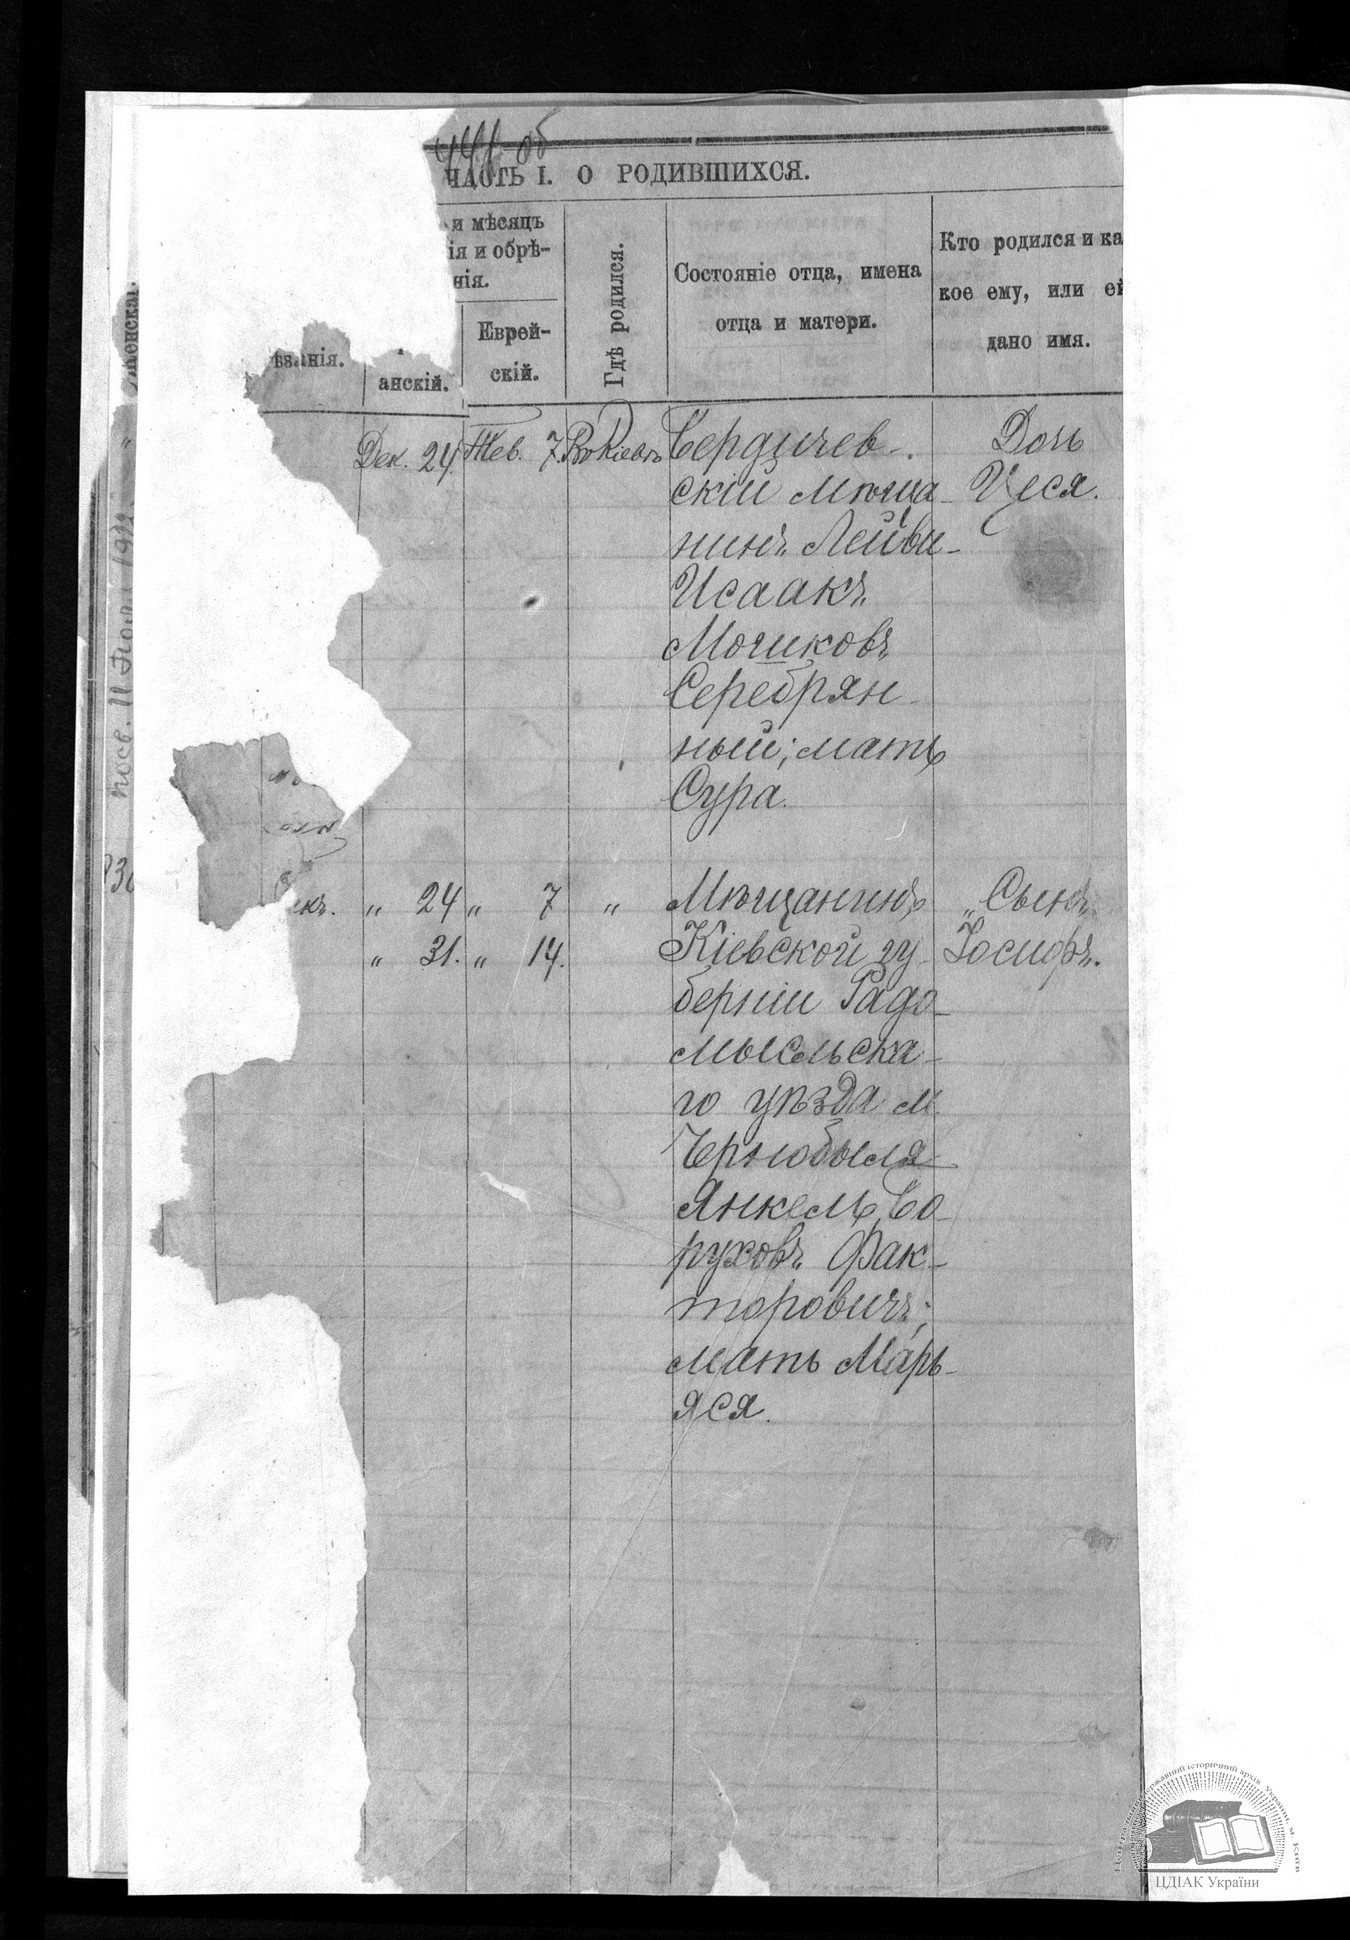 441 об
ЧАСТЬ I. О РОДИВШИХСЯ.
и мѣсяцъ
ія и обрѣ-
нія.
ѣзанія.
анскій.
Еврей-
скій.
Гдѣ родился.
Состояніе отца, имена
отца и матери.
Кто родился и ка
кое ему, или ей
дано имя.
Дек. 24. Тев. 7. Въ Кіевѣ
Бердичев-
скій мѣща-
нинъ Лейви-
Исаакъ
Мошковъ
Серебрян-
ный; мать
Сура.
Дочь
Цеся.
екъ. „ 24 „ 7 „
„ 31. „ 14.
Мѣщанинъ
Кіевской гу-
берніи Радо-
мысльска-
го уѣзда м.
Чернобыля
Янкель Бо-
руховъ Фак-
торовичъ;
мать Марь-
яся.
„ Сынъ
Іосифъ.
женская.
1912.
ЦДІАК України